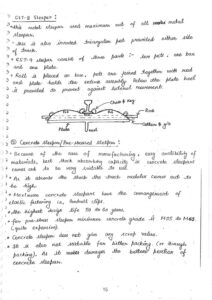 CST-9 Sleeper :
* This metal sleeper used maximum out of all metal
sleeper.
* This is also inverted triangular pot provided either side
of track.
* CST-9 sleeper consist of three parts :- two pot, one bar
and one plate.
* Rail is placed on bar, pots are joined together with rod
and plate holds the entire assembly below the plate keel
is provided to prevent against lateral movement.
Chair & Key
Rod
Plate
Cotters & gib
② Concrete Sleeper/Pre-stressed Sleeper :
* Because of the ease of manufacturing, easy availability of
materials, best shock absorbing capacity the concrete sleeper
comes out to be very suitable to use.
* As it absorbs the shock the track modulus comes out to
be high.
* Maximum concrete sleeper have the arrangement of
elastic fastening i.e., Pandrol clip.
* The highest design life 50 to 60 years.
* For pre-stress sleeper minimum concrete grade is M55 to M65
(quite expensive)
* Concrete sleeper does not give any scrap value.
* It is also not suitable for beater packing (or through
packing). As it damages the bottom portion of
concrete sleeper.